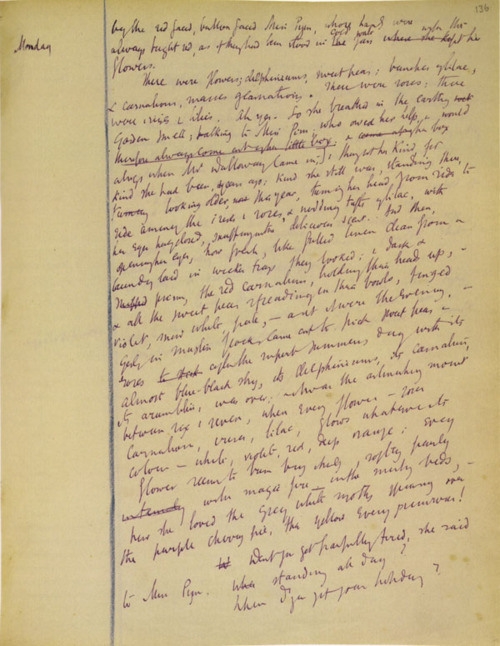 136
Monday
by the red faced, button faced Miss Pym, whose hands were
always bright red, as if they had been stood in cold water with the
flowers.
There were flowers; delphiniums, sweet peas; bunches of lilac,
& carnations, masses of carnations. There were roses; there
were irises & lilies. Ah yes. So she breathed in the earthy
Garden smell; talking to Miss Pym; who owed her help, & would
therefore always come out of her little box
always when Mrs Dalloway came in; & thought her kind, for
kind she had been, years ago; kind she still was, standing there,
looking older, this year, turning her head from side to
side among the irises & roses, & nodding tufts of lilac, with
her eyes half closed, snuffing in the delicious scent. And then,
opening her eyes, how fresh, like frilled linen clean from a
laundry laid in wicker trays they looked; & dark &
prim, the red carnations, holding their heads up, -
& all the sweet peas spreading in their bowls, tinged
violet, snow white, pale, - as if it were the evening, -
girls in muslin frocks came out to pick sweet peas, &
roses after the superb summers day with its
almost blue-black sky, its delphiniums, its carnations,
its arum lilies, was over; & it was the moment
between six & seven, when every flower - roses
carnations, irises, lilac, glows whatever its
colour - white, violet, red, deep orange; every
flower seems to burn by itself, softly, purely
with magic fire - in the misty beds, -
how she loved the grey white moths, spinning over
the purple cherry pie, the yellow evening primroses!
Dont you get fearfully tired, she said
to Miss Pym. standing all day?
When d'you get your holiday?